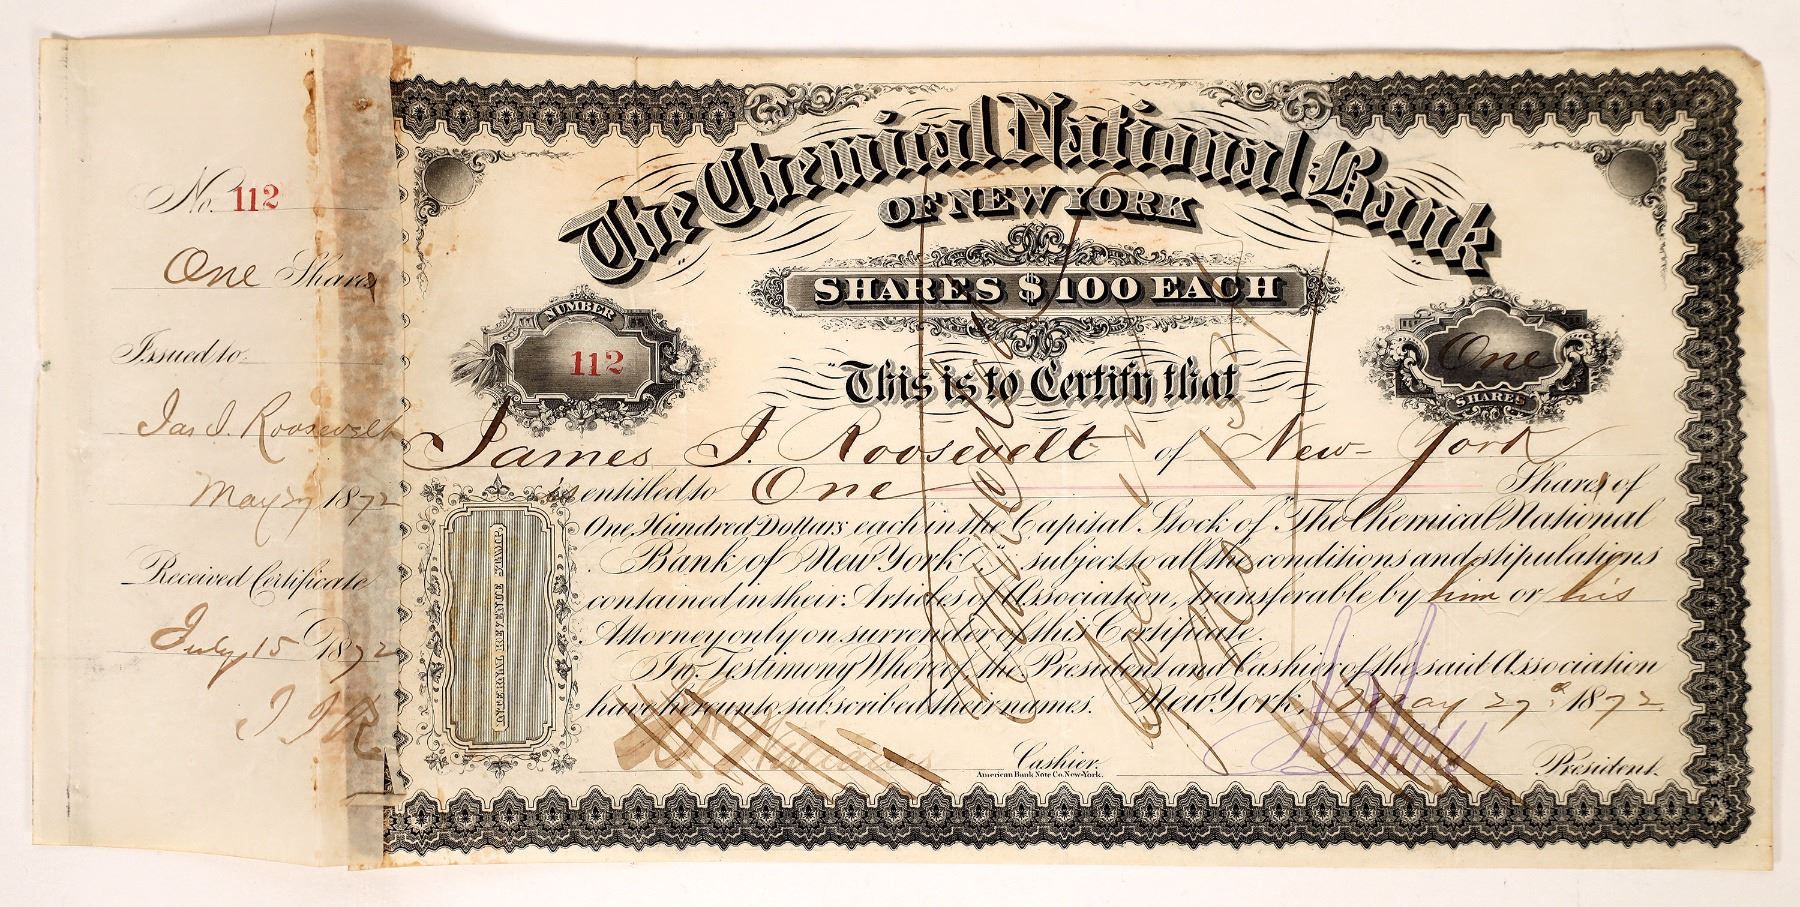 No. 112
One Shares
Issued to
Jas. J. Roosevelt
May 27 1872
Received Certificate
July 15 1872
J J R
The Chemical National Bank
OF NEW YORK
SHARES $100 EACH
NUMBER
112
One
SHARES
This is to Certify that
James J. Roosevelt of New-York
is entitled to One Shares of
One Hundred Dollars each in the Capital Stock of "The Chemical National
Bank of New York", subject to all the conditions and stipulations
contained in their Articles of Association, transferable by him or his
Attorney only on surrender of this Certificate.
In Testimony Whereof, the President and Cashier of the said Association
have hereunto subscribed their names. New York, May 27th 1872
Cashier.
President.
American Bank Note Co. New-York.
INTERNAL REVENUE STAMP
Cancelled